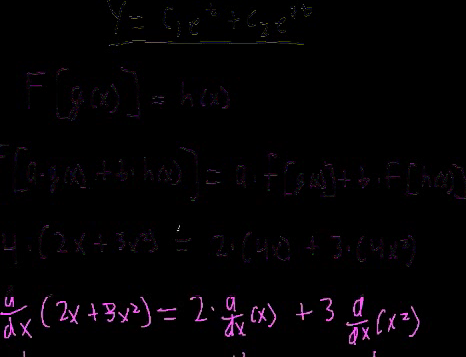 Y = C₁e^t + C₂e^
F[g(x)] = h(x)
F[a·g(x) + b·h(x)] = a·F[g(x)] + b·F[h(x)]
4·(2x + 3x²) = 2·(4x) + 3·(4x²)
d/dx (2x + 3x²) = 2·d/dx (x) + 3 d/dx (x²)